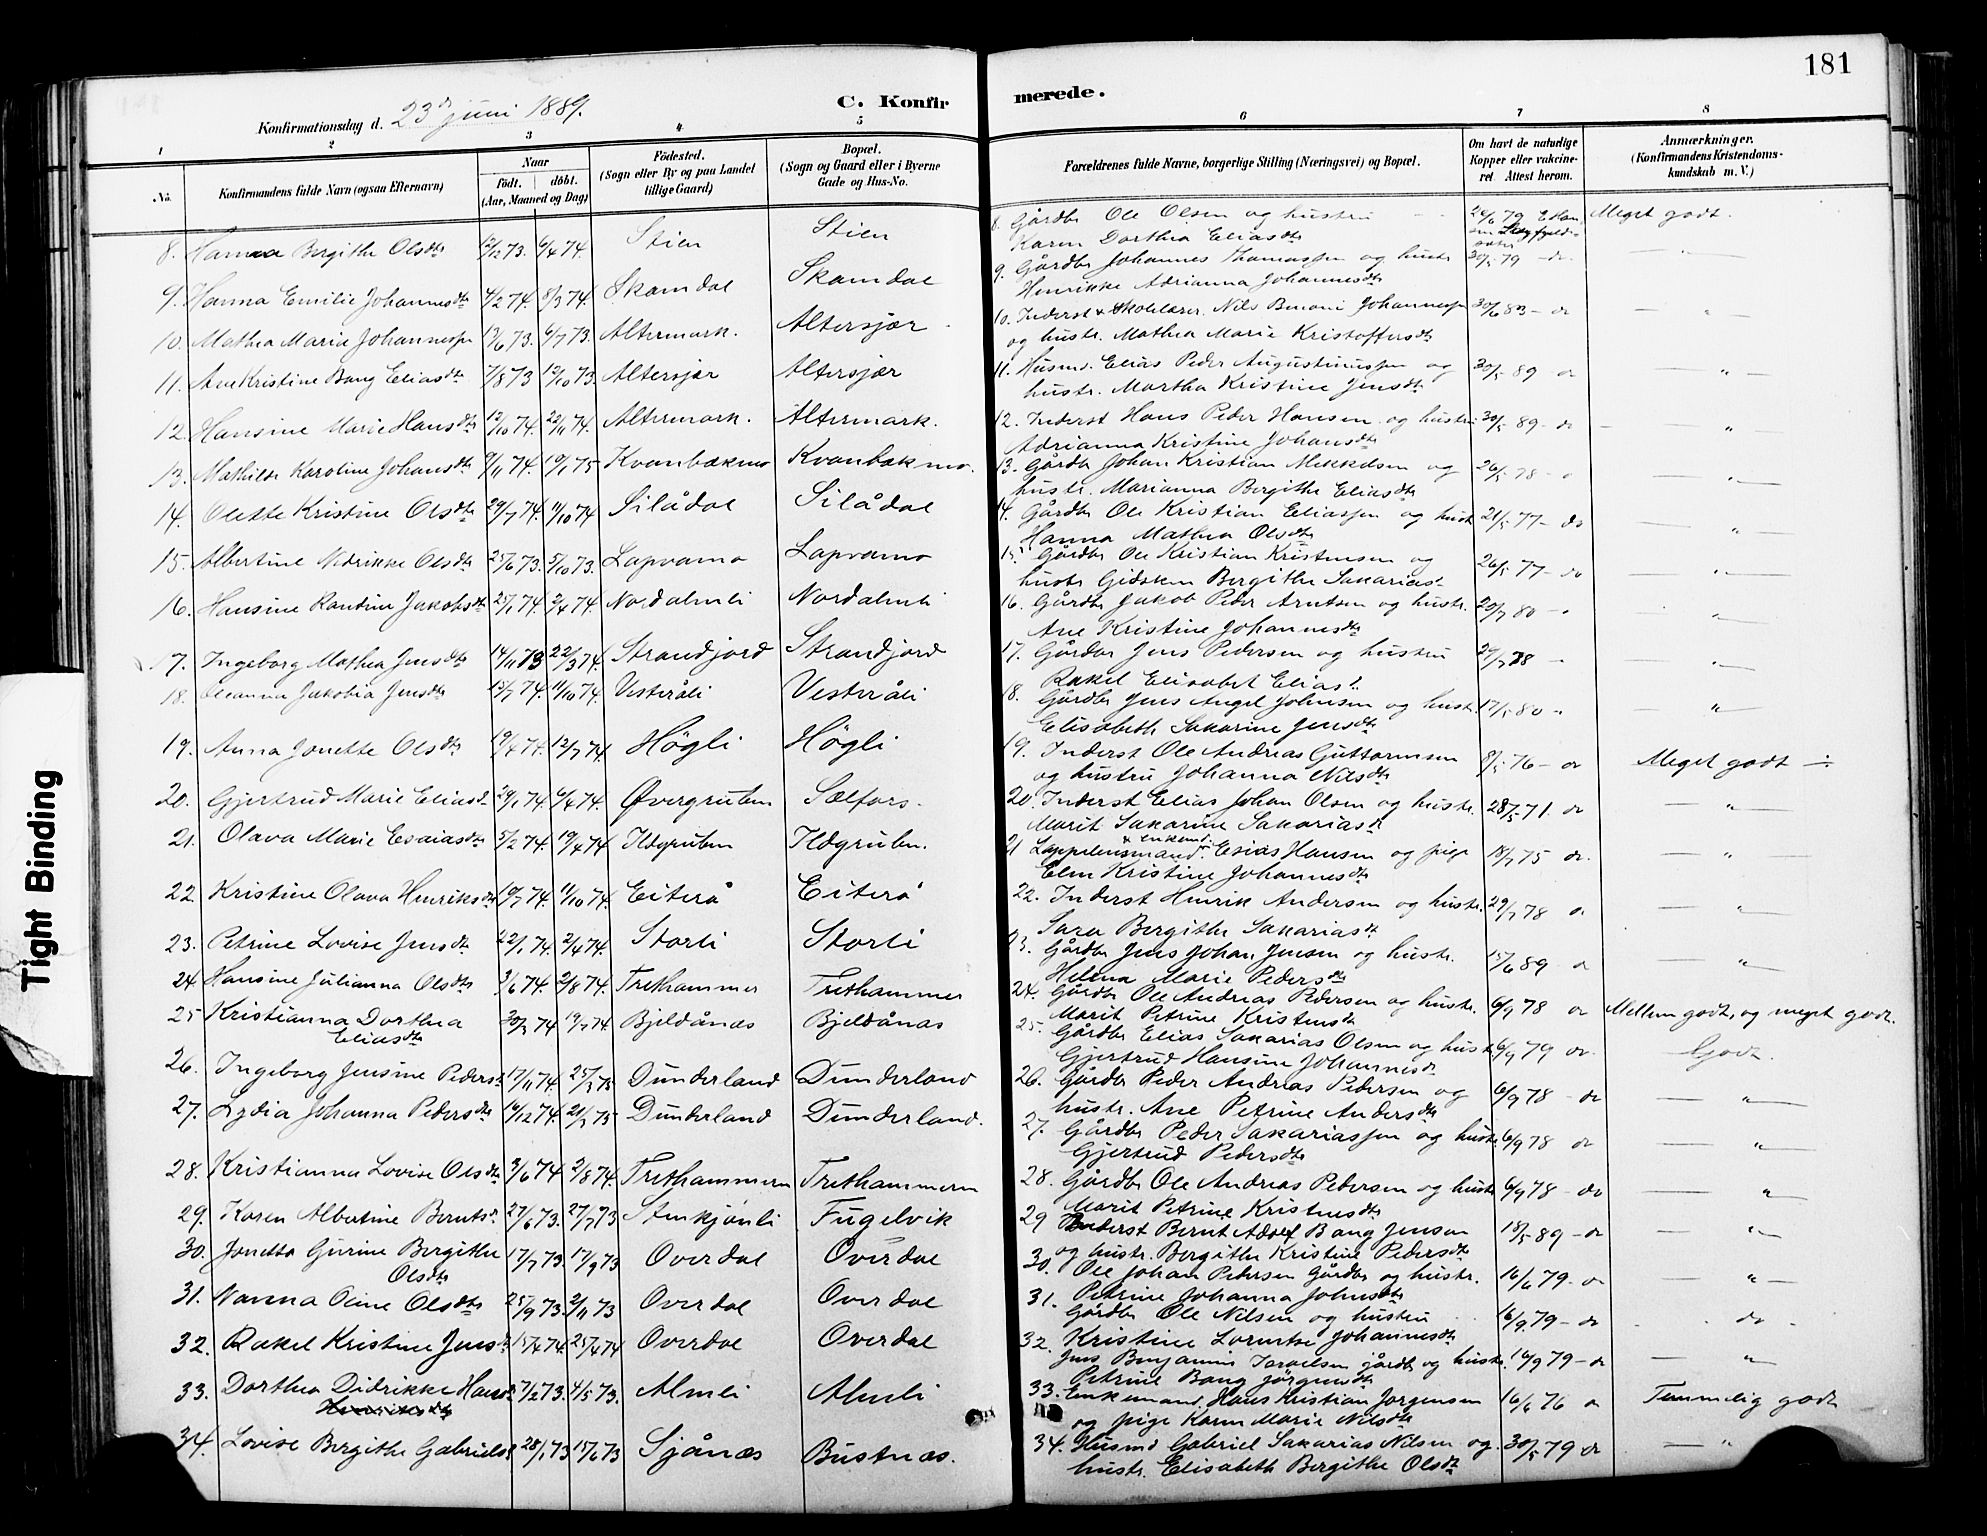 181
C. Konfirmerede.
Konfirmationsdag d. 23d juni 1889.
1 2 3 4 5 6 7 8
No.
Konfirmandens fulde Navn (ogsaa Efternavn)
Naar
födt. döbt.
(Aar, Maaned og Dag)
Födested.
(Sogn eller By og paa Landet
tillige Gaard)
Bopæl.
(Sogn og Gaard eller i Byerne
Gade og Hus-No.
Forældrenes fulde Navne, borgerlige Stilling (Næringsvei) og Bopæl.
Om havt de naturlige
Kopper eller vakcine-
ret. Attest herom.
Anmærkninger.
(Konfirmandens Kristendoms-
kundskab m. V.)
8. Hanna Bergithe Olsdtr 6/4 74. Stien Stien
8. Gårdbr Ole Olsen og hustru 79 Meget godt.
Karen Dorthea Eliasdtr
9. Hanna Emilie Johannesdtr 4/2 74. 8/3 74. Skamdal Skamdal
9. Gårdbr Johannes Thomassen og hustr 30/5 79 - do. "
Henrikke Adrianna Johannesdtr
10. Mathea Maria Johannesen 13/6 73. 6/7 73. Altermark. Altersjær
10. Inderst & Skolelærer Nils Benoni Johannesen 30/6 83 - do "
og hustr. Mathea Marie Kristoffersdtr
11. Ane Kristine Bang Eliasdtr 7/8 73 12/10 73. Altersjær Altersjær
11. Husmd. Elias Peder Augustinussen og 30/5 89 - do "
hustr. Martha Kristine Jensdtr
12. Hansine Marie Hansdtr 12/10 74. 22/11 74. Altermark. Altermark.
12. Inderst Hans Peder Hansen og hustru 30/5 89 - do "
Adrianna Kristine Johansdtr
13. Mathilde Karoline Johansdtr 9/11 74. 10/1 75 Kvanbækmo Kvanbækmo.
13. Gårdbr Johan Kristian Mikkelsen og 26/5 78 - "
hustr. Marianna Bergithe Eliasdtr
14. Olette Kristine Olsdtr 29/7 74. 11/10 74 Silådal Silådal
14. Gårdbr Ole Kristian Eliassen og hust 21/5 77 - do "
Hanna Mathea Olsdtr
15. Albertine Nidrikke Olsdtr 25/6 73. 5/10 73. Lapvamo Lapvamo
15. Gårdbr Ole Kristian Kristensen og 26/5 77 - do "
hustr Gidsken Bergithe Sakariasd.
16. Hansine Randine Jakobsdtr 25/1 74. 2/4 74. Nordalmli Nordalmli
16. Gårdbr Jakob Peder Arntsen og hustr. 20/7 80 - "
Ane Kristine Johannesdtr
17. Ingeborg Mathea Jensdtr 14/11 73 22/3 74. Strandjord Strandjord
17. Gårdbr Jens Pedersen og hustru 29/7 78 - "
Rakel Elisabet Eliasd.
18. Oleanna Jakobia Jensdtr 15/7 74. 11/10 74. Vesteråli Vesteråli
18. Gårdbr Jens Angel Johnsen og hust. 17/5 80 - "
Elisabeth Sakarine Jensdtr
19. Anna Jonette Olsdtr 19/4 74. 12/7 74. Högli Högli
19. Inderst Ole Andreas Guttormsen 8/5 76 - do Meget godt
og hustru Johanna Nilsdtr
20. Gjertrud Marie Eliasd. 29/1 74. 6/4 74. Øvergruben Sælfors.
20. Inderst Elias Johan Olsen og hustr. 28/5 71. do "
Marit Sakarine Sakariasd
21. Olava Marie Esaiasdtr 5/2 74. 19/4 74 Ildgruben Ildgruben.
& enkemd.
21 Lappelensmand Esias Hansen og pige 18/7 75 do. "
Elen Kristine Johannesdtr
22. Kristine Olava Henriksdtr 19/7 74. 11/10 74. Eiterå Eiterå
22. Inderst Henrik Andersen og hustr. 29/7 78 "
Sara Bergithe Sakariasdt
23. Petrine Lovise Jensdtr 22/1 74. 2/4 74. Storli Storli
23. Gårdbr Jens Johan Jensen og hustr. 15/6 89 "
Helena Marie Pedersdtr
24. Hansine Julianna Olsdtr 3/6 74. 2/8 74. Trethammer Trethammer
24. Gårdbr Ole Andreas Pedersen og hustr. 6/9 78 do Mellem godt, og meget godt.
Marit Petrine Kristensdtr
25 Kristianna Dorthea 30/3 74 19/7 74 Bjeldånæs Bjeldånæs
Eliasdtr
25. Gårdbr Elias Sakarias Olsen og hust 6/9 79 do. Godt.
Gjertrud Hansine Johannesd
26. Ingeborg Jensine Peders 17/11 74. 25/3 75 Dunderland Dunderland
26. Gårdbr Peder Andreas Pedersen og 6/9 78 - do "
hustr. Ane Petrine Andersdtr
27. Lydia Johanna Pedersdtr 16/12 74. 21/3 75 Dunderland Dunderland.
27. Gårdbr Peder Sakariassen og hustr 6/9 78 do "
Gjertrud Pedersdtr
28. Kristianna Lovise Olsdtr 3/6 74 2/8 74. Trethammern Trethammern
28. Gårdbr Ole Andreas Pedersen og hustr 6/9 78 - do "
Marit Petrine Kristensdtr
29. Karen Albertine Berntsd. 27/6 73. 27/7 73 Stenkjönli Fugelvik
29 Inderst Bernt Adolf Bang Jensen 18/5 89 - do "
og hustr. Bergithe Kristine Pedersdtr
30. Jonetta Gurine Bergithe 17/7 73. 17/9 73 Överdal Överdal
Olsdtr
30. Ole Johan Petersen Gårdbr og hustr. 16/6 79 - do "
Petrine Johanna Johnsdtr
31. Nanna Oline Olsdtr 25/9 73. 2/11 73 Overdal Overdal
31. Gårdbr Ole Nilsen og hustru 16/9 79 - do do
Kristine Lorentse Johannesdtr
32. Rakel Kristine Jensd 15/4 74. 25/4 74 Overdal Overdal
32. Jens Benjamin Israelsen gårdbr og hustr. 16/9 79 - do "
Petrine Bang Jörgensdtr
33. Dorthea Didrikke Hansd. 7/2 73. 4/5 73. Almli Almli
33. Enkemand Hans Kristian Jörgensen 16/6 76 Temmelig godt
og pige Karen Marie Nilsdtr
34. Lovise Bergithe Gabrielsd 28/1 73 15/6 73 Sjånæs Bustnæs.
34. Husmd Gabriel Sakarias Nilsen og 30/5 79 do "
hustr. Elisabeth Bergithe Olsdtr
Tight Binding